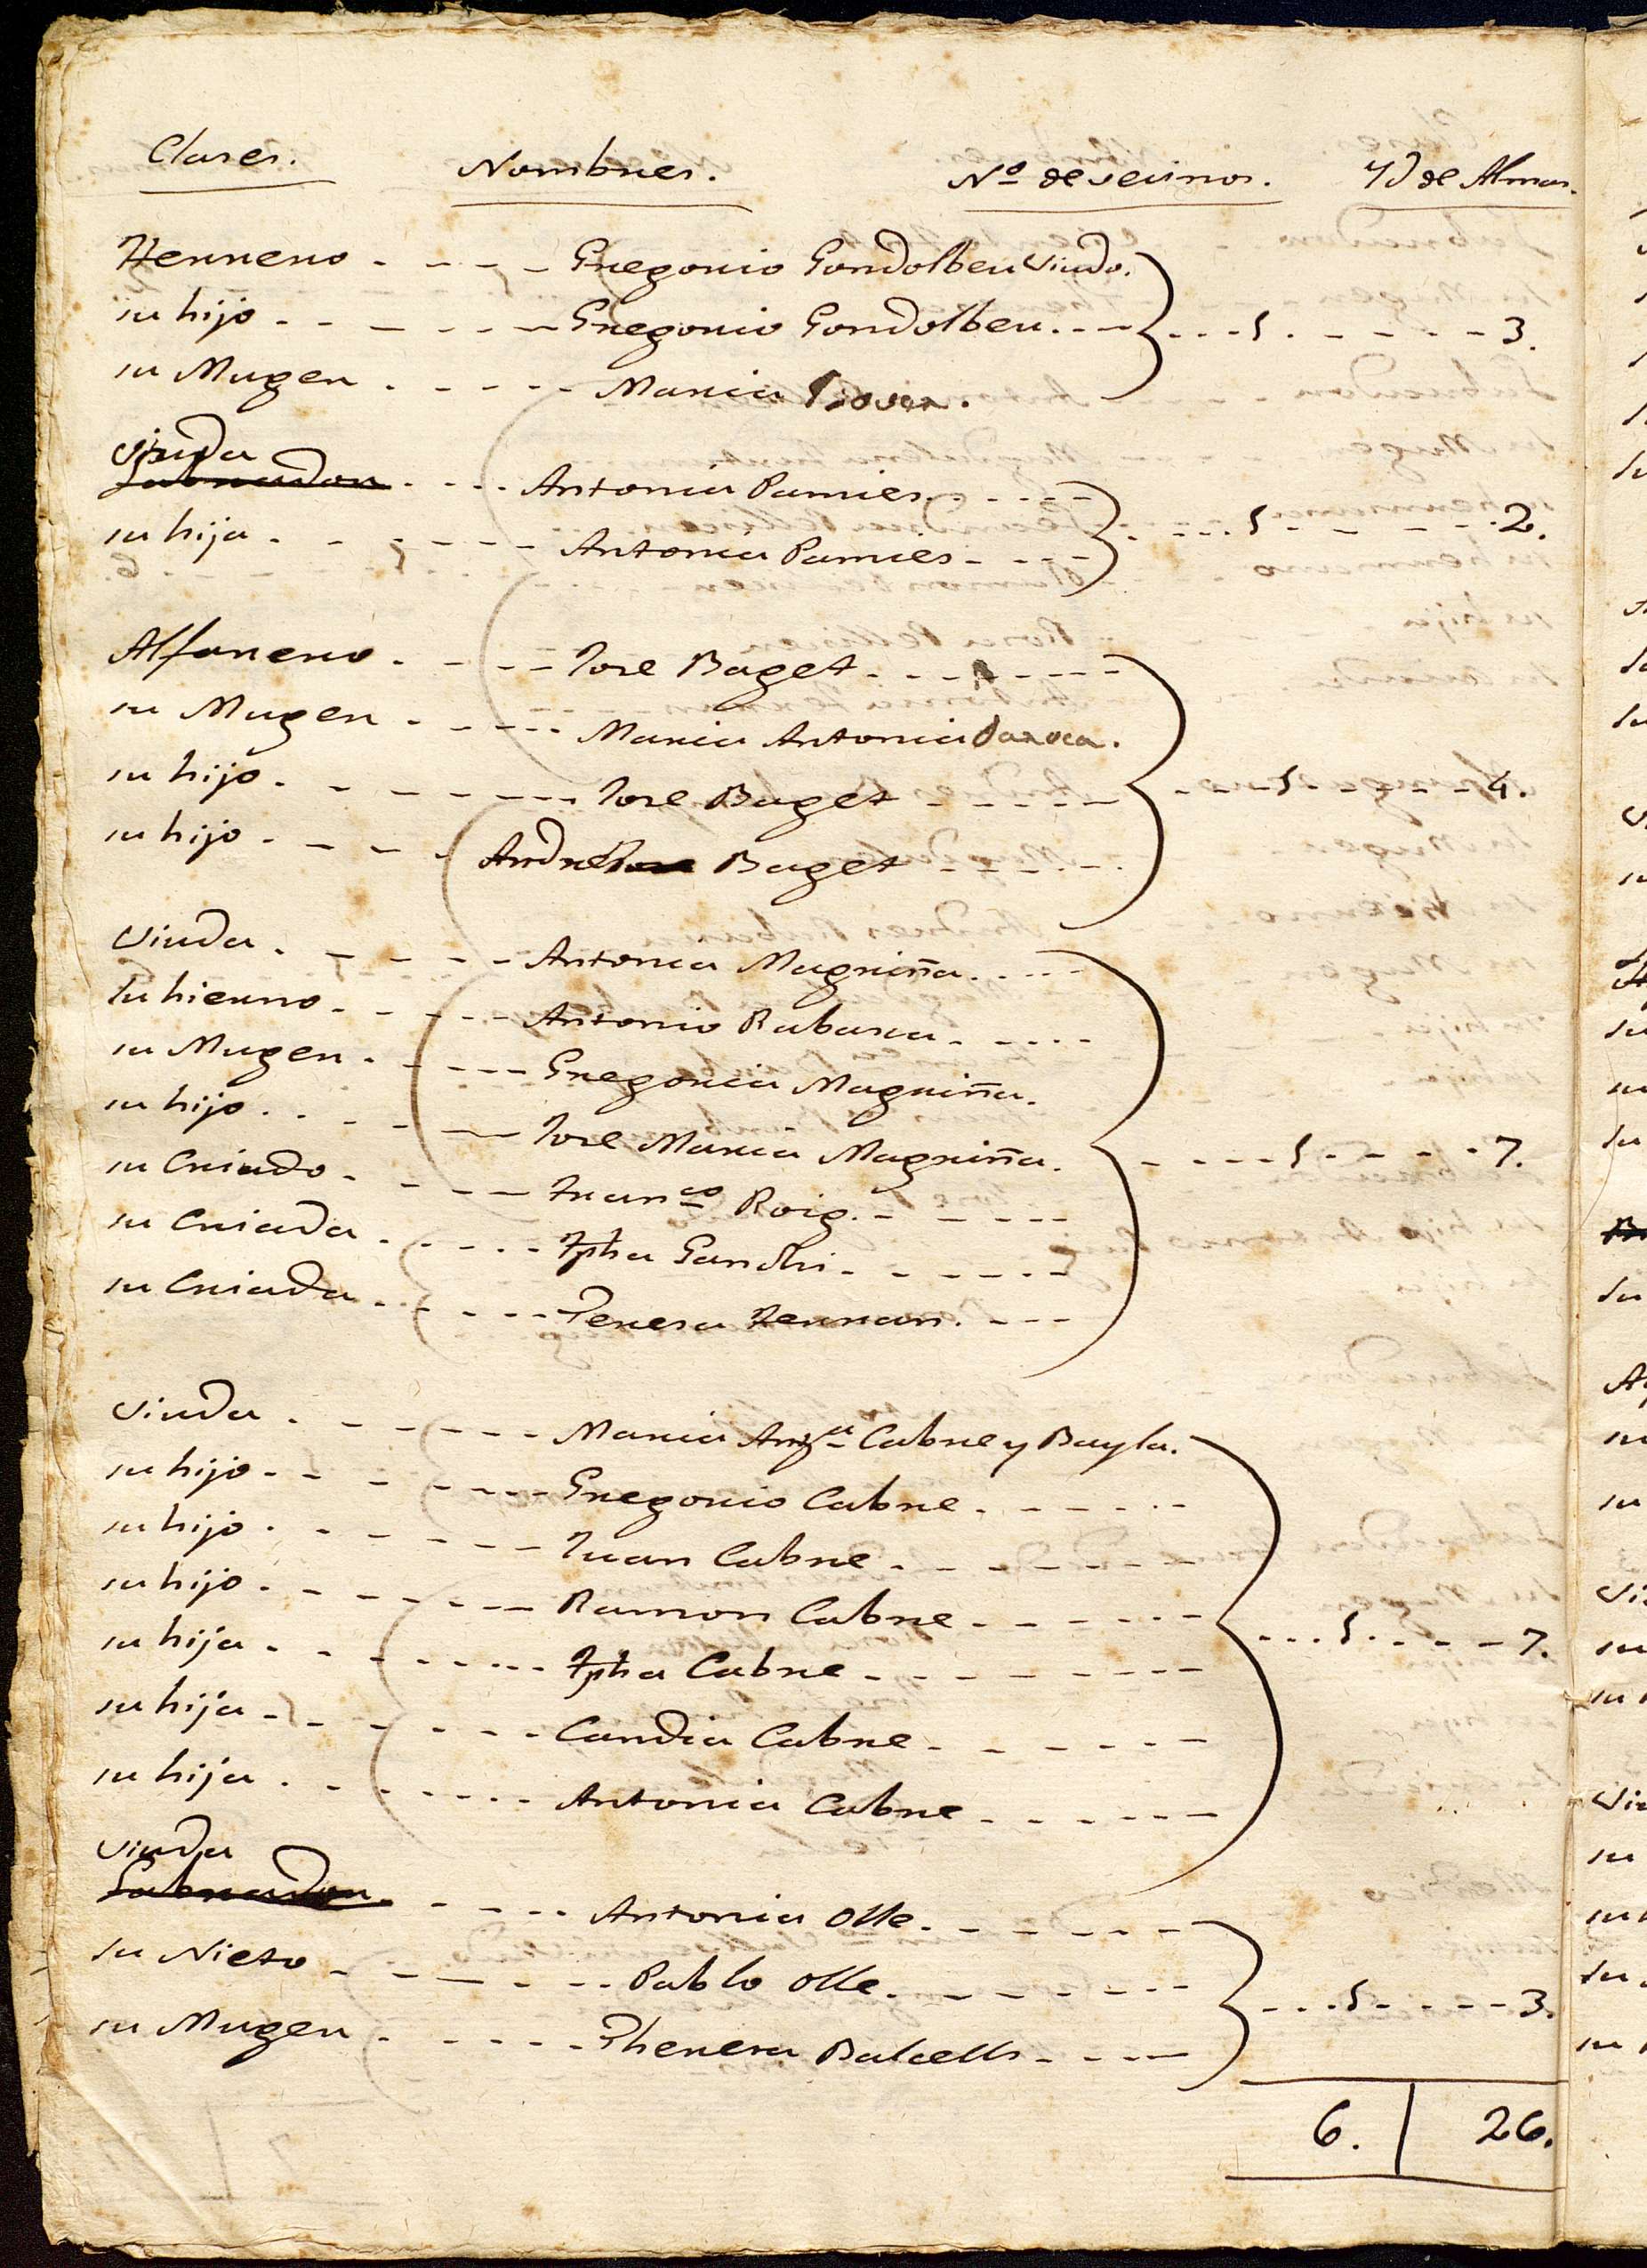 Clases. Nombres. Nº de vecinos. Yd de Almas.
Herrero - - - - Gregorio Gondolbeu Viudo.
su hijo - - - - - - Gregorio Gondolbeu - - - 1 - - - - - 3.
su Muger - - - - - Maria Rover.
Viuda
Labrador - - - Antonia Pamies - - - - 1 - - - - - 2.
su hija - - - - - - Antonia Pamies - - - -
Alfarero - - - - Jose Baget - - - - - - -
su Muger - - - - - Maria Antonia Daroca.
su hijo - - - - - - - Jose Baget - - - - - 1 - - - - - 4.
su hijo - - - - Andre Baget - - - - - -
Viuda - - - - - Antonia Magriña - - - -
Su hierno - - - - - Antonio Rabasca - - - - -
su Muger - - - - - Gregoria Magriña.
su hijo - - - - - Jose Maria Magriña. - - - - 1 - - - - 7.
su Criado - - - - - Franco Roig - - - - - -
su Criada - - - - - Jpha Sandri - - - - - -
su Criada - - - - - Teresa Ferran - - - -
Viuda - - - - - - Maria Anga Cabre y Bayla.
su hijo - - - - - - - Gregorio Cabre - - - - - -
su hijo - - - - - - Juan Cabre - - - - - - -
su hijo - - - - - - - Ramon Cabre - - - - - -
su hija - - - - - - - Jpha Cabre - - - - - - - - 1 - - - - 7.
su hija - - - - - - - Candia Cabre - - - - - -
su hija - - - - - - - Antonia Cabre - - - - - -
Viuda
Labrador - - - - Antonia Olle - - - - - -
su Nieto - - - - - - Pablo Olle - - - - - - - 1 - - - - 3.
su Muger - - - - - Theresa Balcells - - - -
6. | 26.